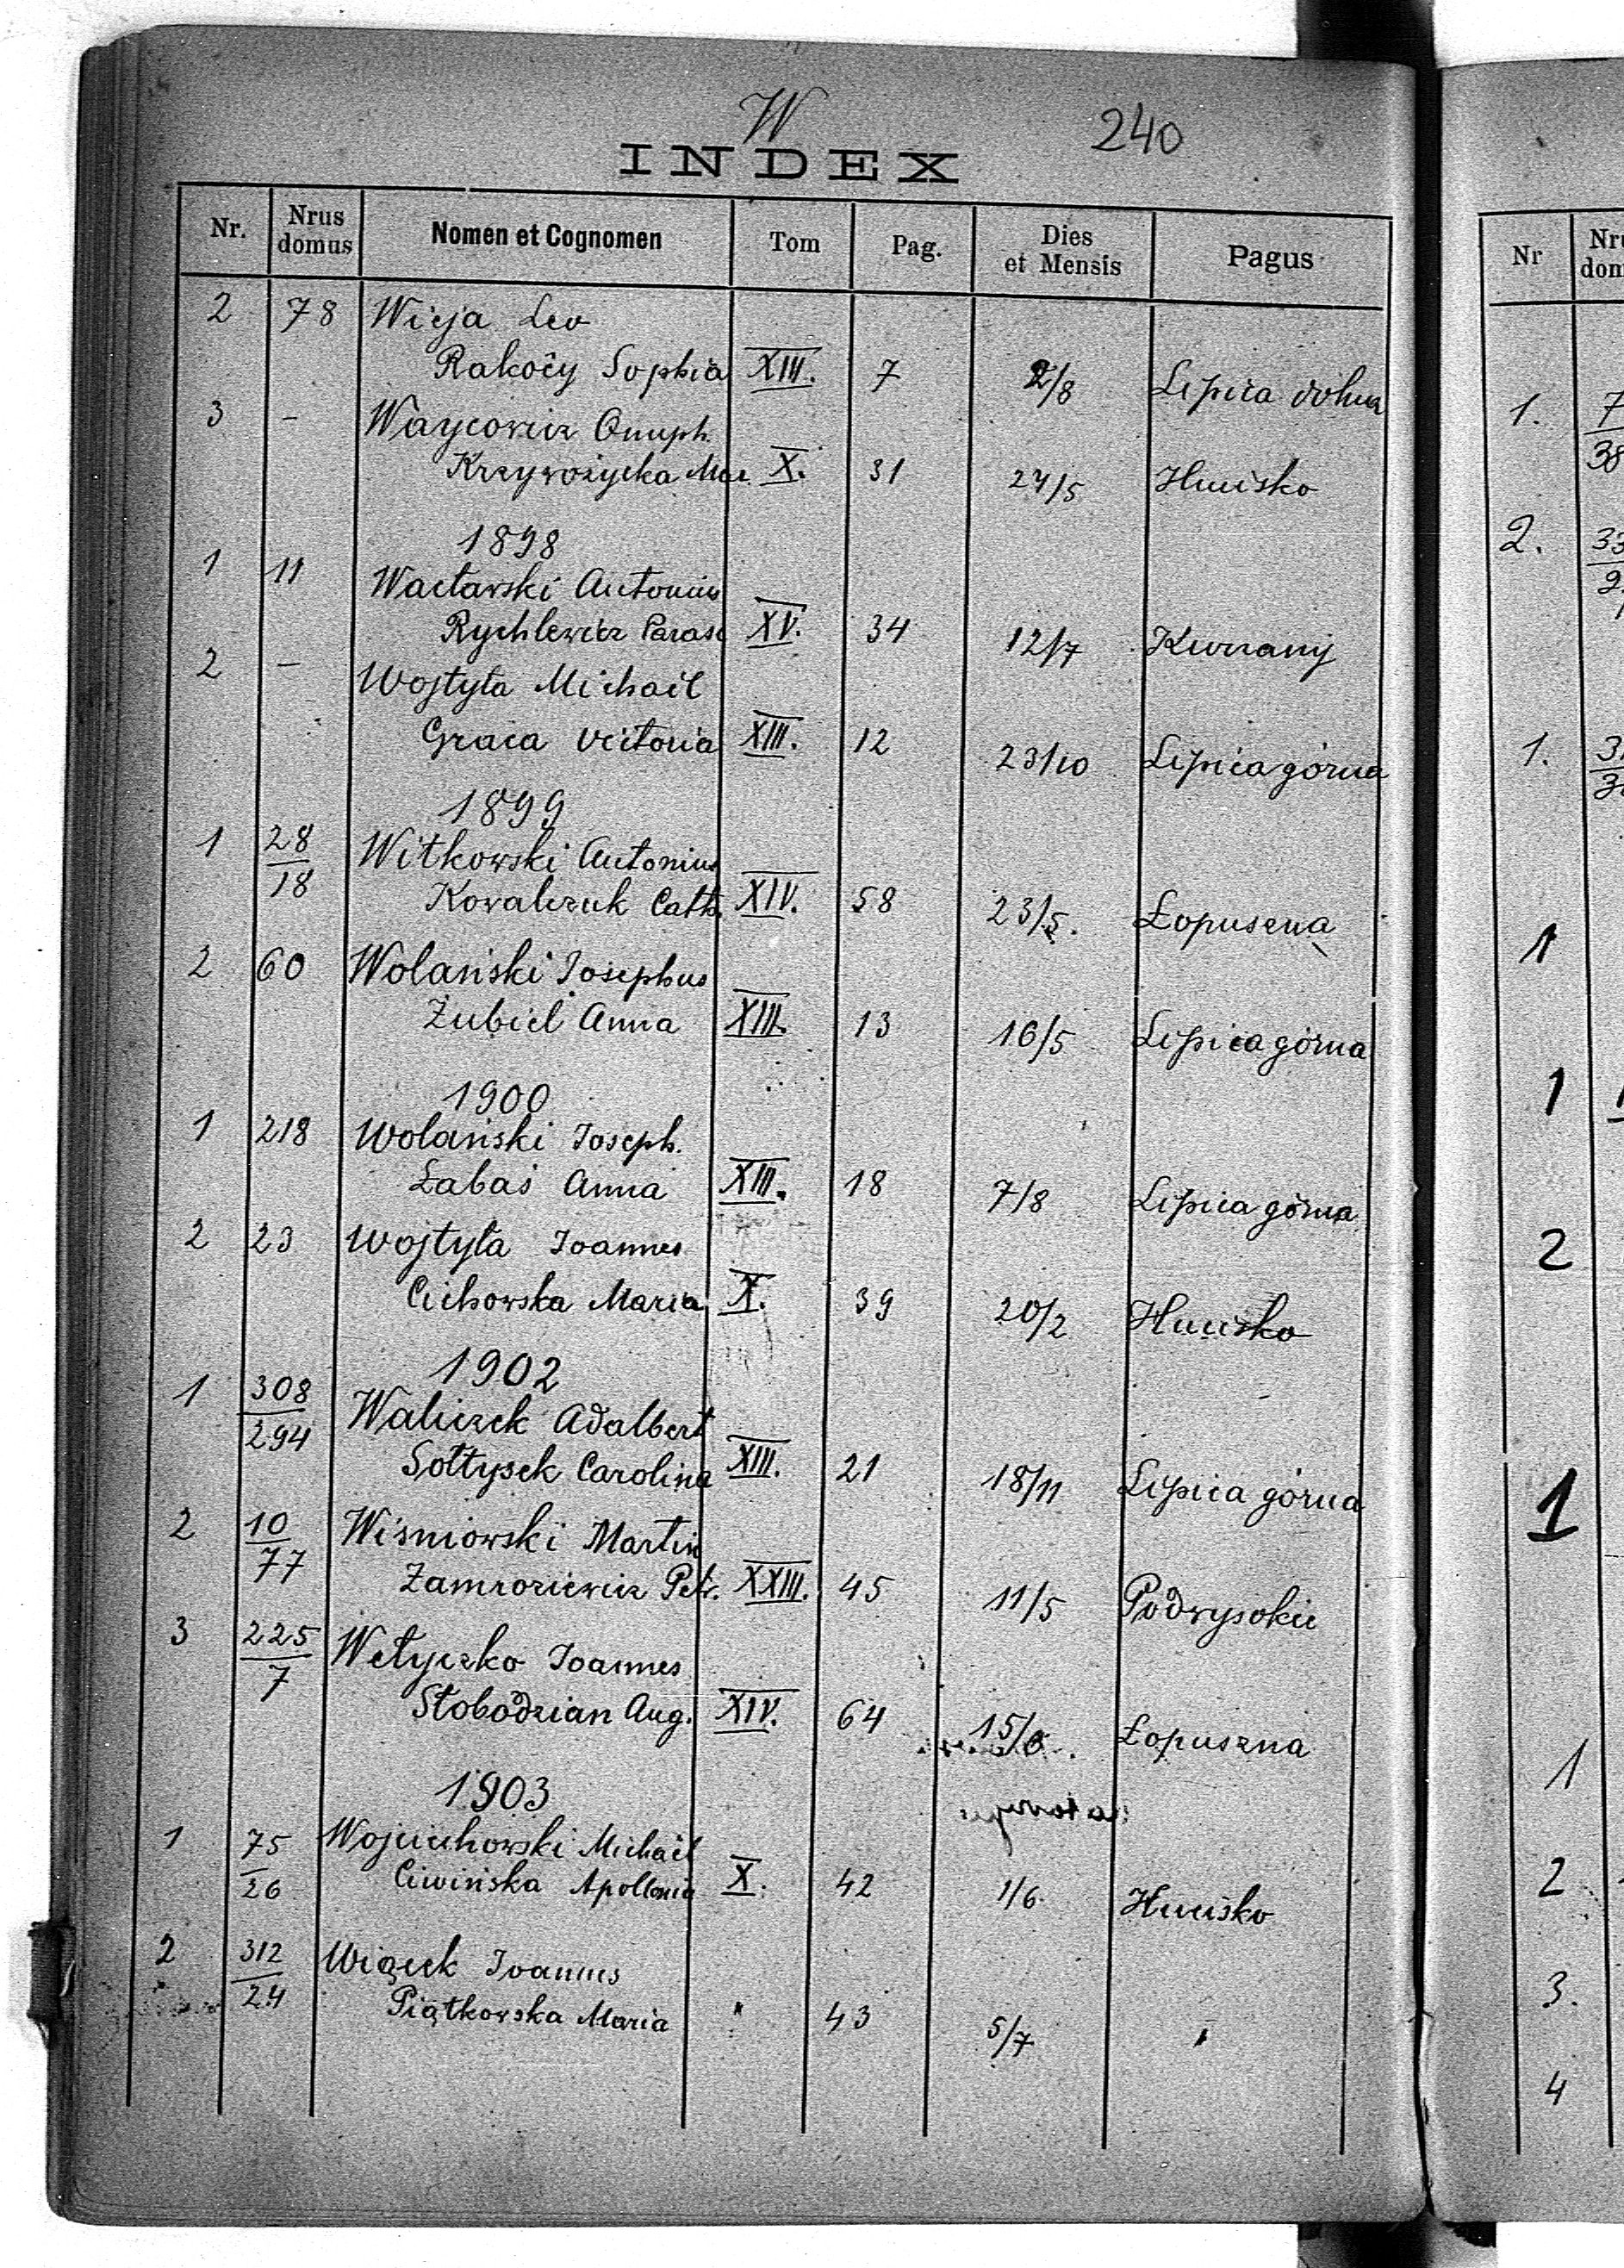 W 240
INDEX
Nr. Nrus domus Nomen et Cognomen Tom Pag. Dies et Mensis Pagus
2 78 Wieja Leo
Rakoćy Sophia XIII. 7 2/8 Lipica dolna
3 - Waycowicz Onuph.
Krzywożycka Mar. X. 31 27/5 Hucisko
1898
1 11 Wacławski Antonius
Rychlewicz Paras. XV. 34 12/7 Kurzany
2 - Wojtyła Michaël
Graca Victoria XIII. 12 23/10 Lipica górna
1899
1 28/18 Witkowski Antonius
Kowalczuk Cath. XIV. 58 23/5. Łopuszna
2 60 Wolański Josephus
Żubiel Anna XIII. 13 16/5 Lipica górna
1900
1 218 Wolański Joseph.
Łabaś Anna XIII. 18 7/8 Lipica górna
2 23 Wojtyła Joannes
Cichowska Maria X. 39 20/2 Hucisko
1902
1 308/294 Waliczek Adalbert
Sołtysek Carolina XIII. 21 18/11 Lipica górna
2 10/77 Wiśniowski Martin
Zamroziewicz Petr. XXIII. 45 11/5 Podwysokie
3 225/7 Wełyczko Joannes
Słobodzian Aug. XIV. 64 15/6. Łopuszna
1903
1 75/26 Wojciechowski Michaël
Ciwińska Apollonia X. 42 1/6 Hucisko
2 312/24 Wiącek Joannes
Piątkowska Maria " 43 5/7 "
Nr
1.
2.
1.
1
1
2
1
1
2
3.
4